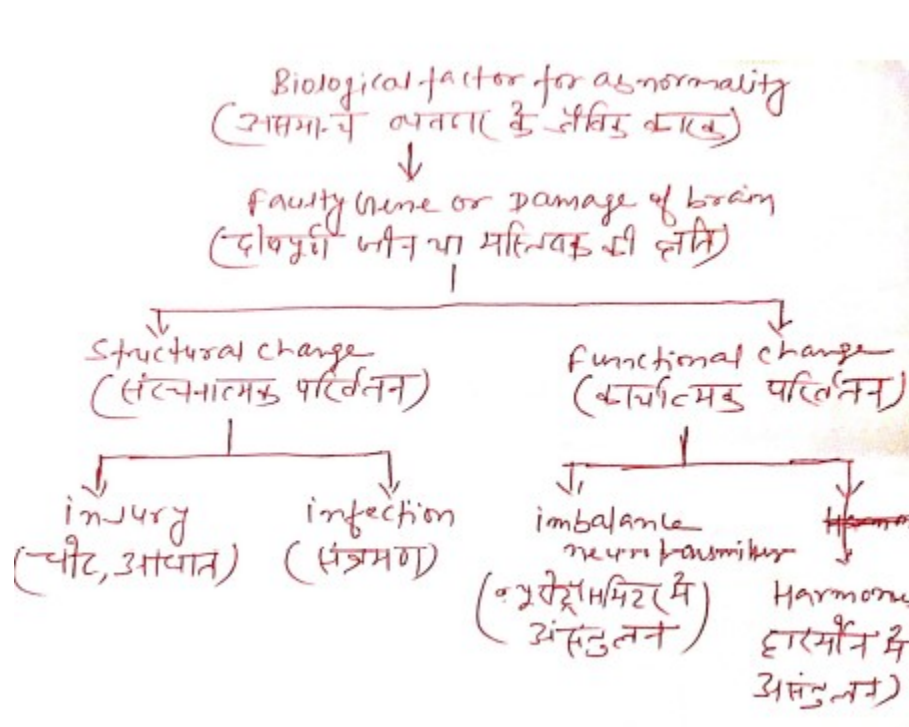 Biological factor for abnormality
(असमान्य व्यवहार के जैविक कारक)
Faulty Gene or Damage of brain
(दोषपूर्ण जीन या मस्तिष्क की क्षति)
Structural change
(संरचनात्मक परिर्वतन)
Functional change
(कार्यात्मक परिर्वतन)
injury
(चोट, आघात)
infection
(संक्रमण)
imbalance
neurotransmitter
(न्यूरोट्रांसमिटर में
असंतुलन)
हारमोन में
असंतुलन)